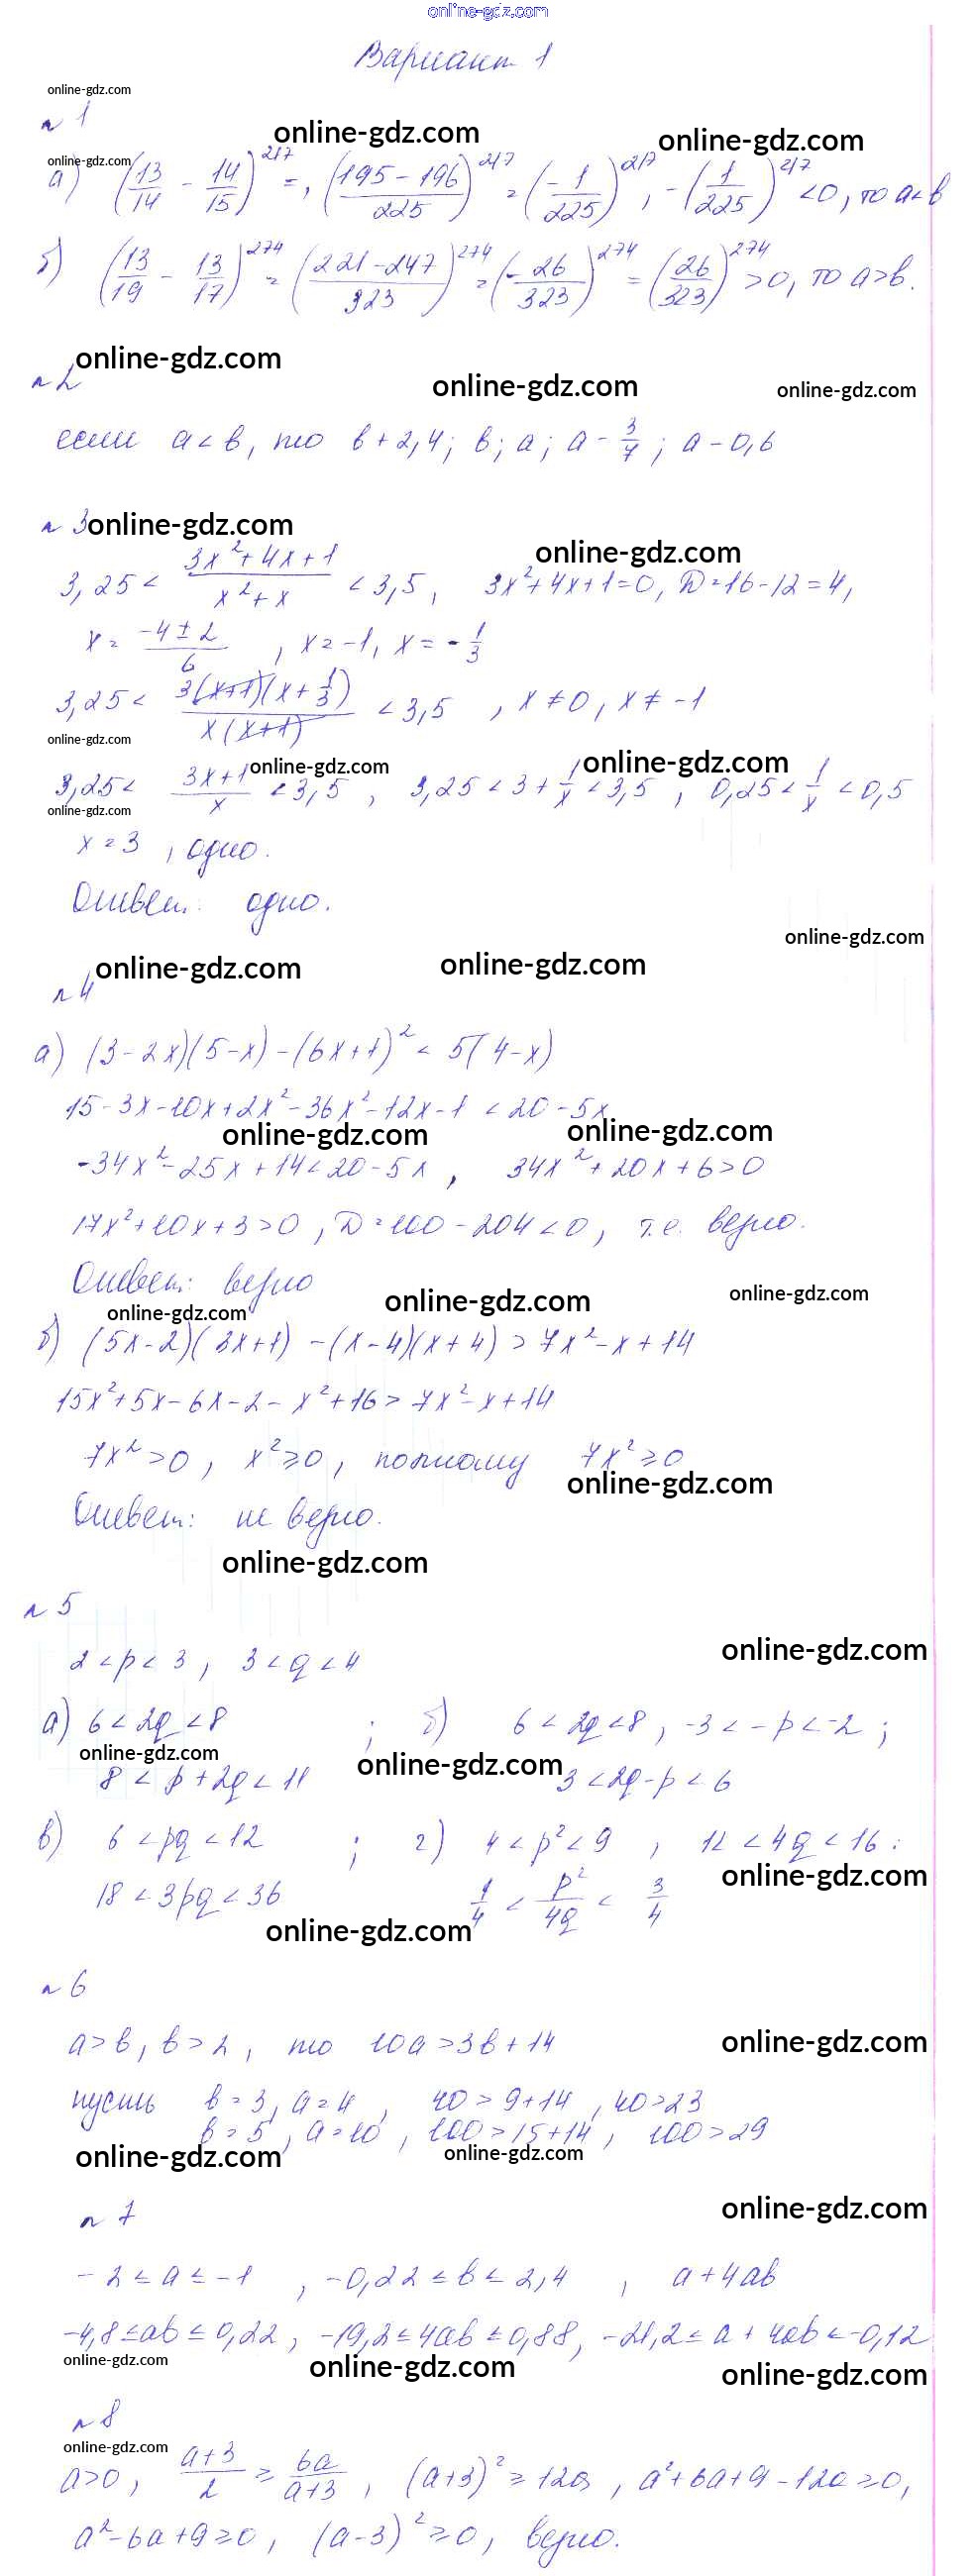 online-gdz.com
Вариант 1
online-gdz.com
№ 1
online-gdz.com
online-gdz.com
online-gdz.com
а) (13/14 - 14/15)^217 =, ((195-196)/225)^217 = (-1/225)^217, -(1/225)^217 < 0, то a<b
б) (13/19 - 13/17)^274 = ((221-247)/323)^274 = (-26/323)^274 = (26/323)^274 > 0, то a>b.
online-gdz.com
№ 2
online-gdz.com
online-gdz.com
если a<b, то b+2,4; b; a; a - 3/7; a-0,6
№ 3
online-gdz.com
online-gdz.com
3,25 < (3x²+4x+1)/(x²+x) < 3,5, 3x²+4x+1=0, D=16-12=4,
x = (-4±2)/6, x=-1, x=-1/3
3,25 < 3(x+1)(x+1/3)/(x(x+1)) < 3,5, x≠0, x≠-1
online-gdz.com
online-gdz.com
online-gdz.com
3,25 < (3x+1)/x < 3,5, 3,25 < 3+1/x < 3,5, 0,25 < 1/x < 0,5
online-gdz.com
x=3, одно.
Ответ: одно.
online-gdz.com
online-gdz.com
online-gdz.com
№ 4
а) (3-2x)(5-x)-(6x+1)² < 5(4-x)
15-3x-10x+2x²-36x²-12x-1 <20-5x
online-gdz.com
online-gdz.com
-34x²-25x+14<20-5x, 34x²+20x+6>0
17x²+10x+3>0, D=100-204<0, т.е. верно.
Ответ: верно
online-gdz.com
online-gdz.com
online-gdz.com
б) (5x-2)(3x+1)-(x-4)(x+4) > 7x²-x+14
15x²+5x-6x-2-x²+16>7x²-x+14
7x²>0, x²⩾0, поэтому 7x²⩾0
online-gdz.com
Ответ: не верно.
online-gdz.com
№ 5
online-gdz.com
2<p<3, 3<q<4
а) 6<2q<8 ; б) 6<2q<8, -3<-p<-2;
online-gdz.com
online-gdz.com
8<p+2q<11 3<2q-p<6
в) 6<pq<12 ; г) 4<p²<9, 12<4q<16:
online-gdz.com
18<3pq<36 1/4 < p²/4q < 3/4
online-gdz.com
№ 6
a>b, b>2, то 10a>3b+14
online-gdz.com
пусть b=3, a=4, 40>9+14, 40>23
b=5, a=10, 100>15+14, 100>29
online-gdz.com
online-gdz.com
№ 7
online-gdz.com
-2≤a≤-1, -0,22≤b≤2,4, a+4ab
-4,8≤ab≤0,22, -19,2≤4ab≤0,88, -21,2≤a+4ab<-0,12
online-gdz.com
online-gdz.com
online-gdz.com
№ 8
online-gdz.com
a>0, (a+3)/2 ⩾ 6a/(a+3), (a+3)²⩾12a, a²+6a+9-12a⩾0,
a²-6a+9⩾0, (a-3)²⩾0, верно.